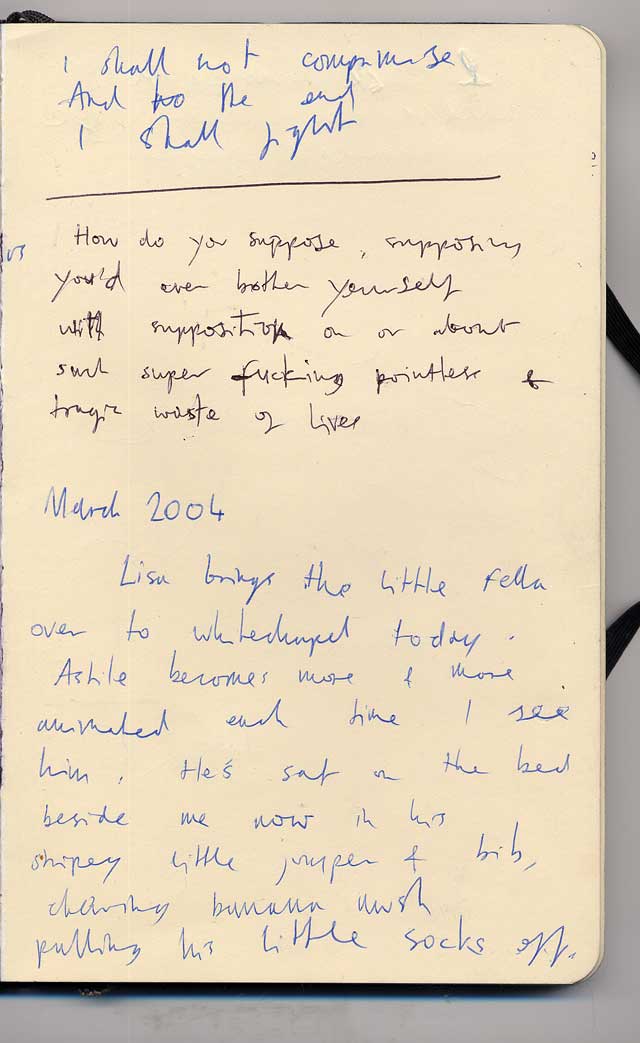 I shall not compramise
And too the end
I shall fight
How do you suppose, supposing
you'd ever bother yourself
with supposition on or about
such super fucking pointless &
tragic waste of lives
March 2004
Lisa brings the little fella
over to whitechapel today.
Astile becomes more & more
animated each time I see
him. He's sat on the bed
beside me now in his
stripey little jumper & bib,
chewing banana mush
pulling his little socks off.